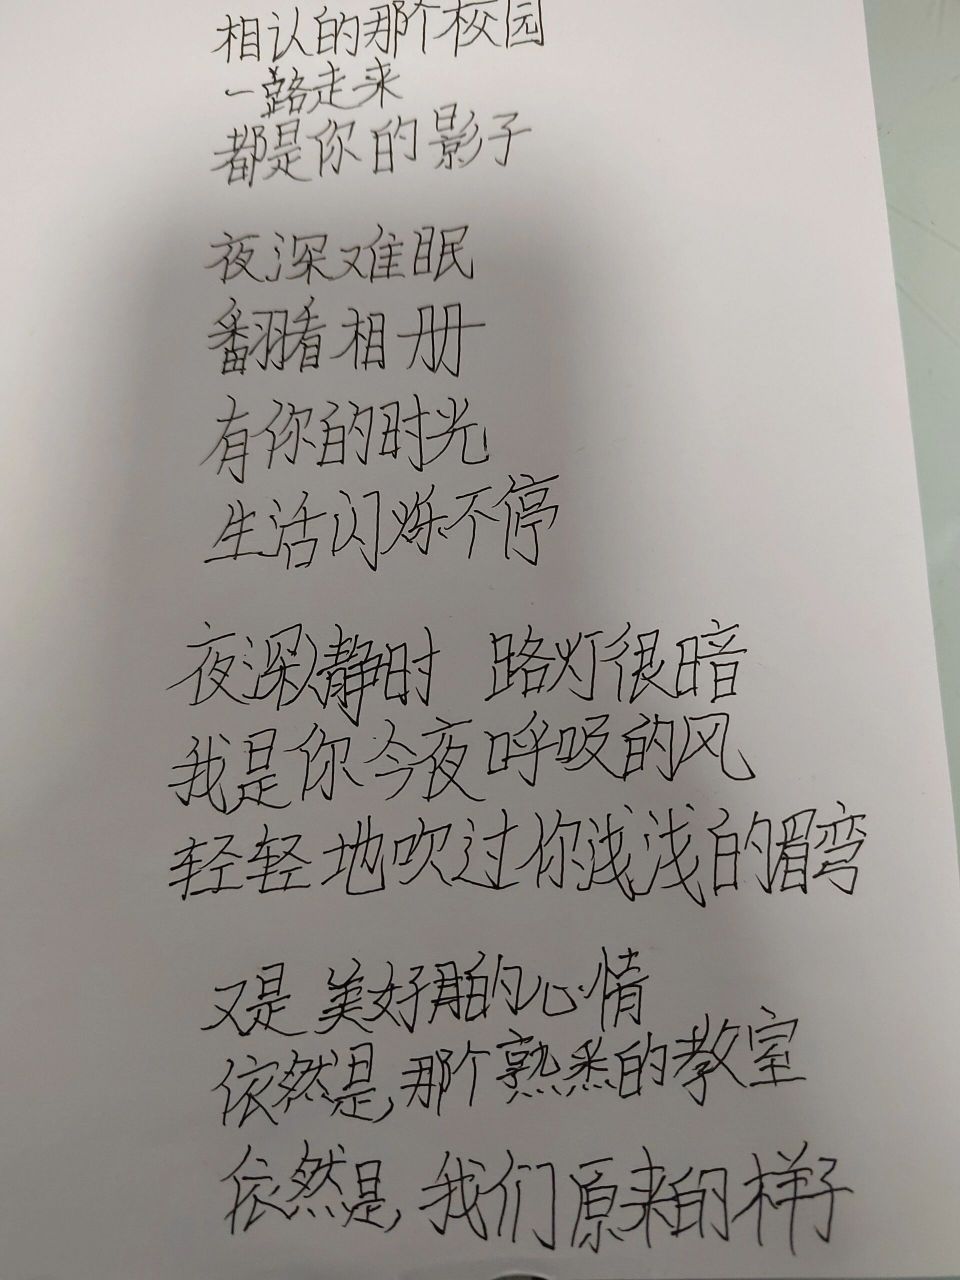 相认的那个校园
一路走来
都是你的影子
夜深难眠
翻看相册
有你的时光
生活闪烁不停
夜深人静时 路灯很暗
我是你今夜呼吸的风
轻轻地吹过你浅浅的眉弯
又是美好的心情
依然是,那个熟悉的教室
依然是,我们原来的样子